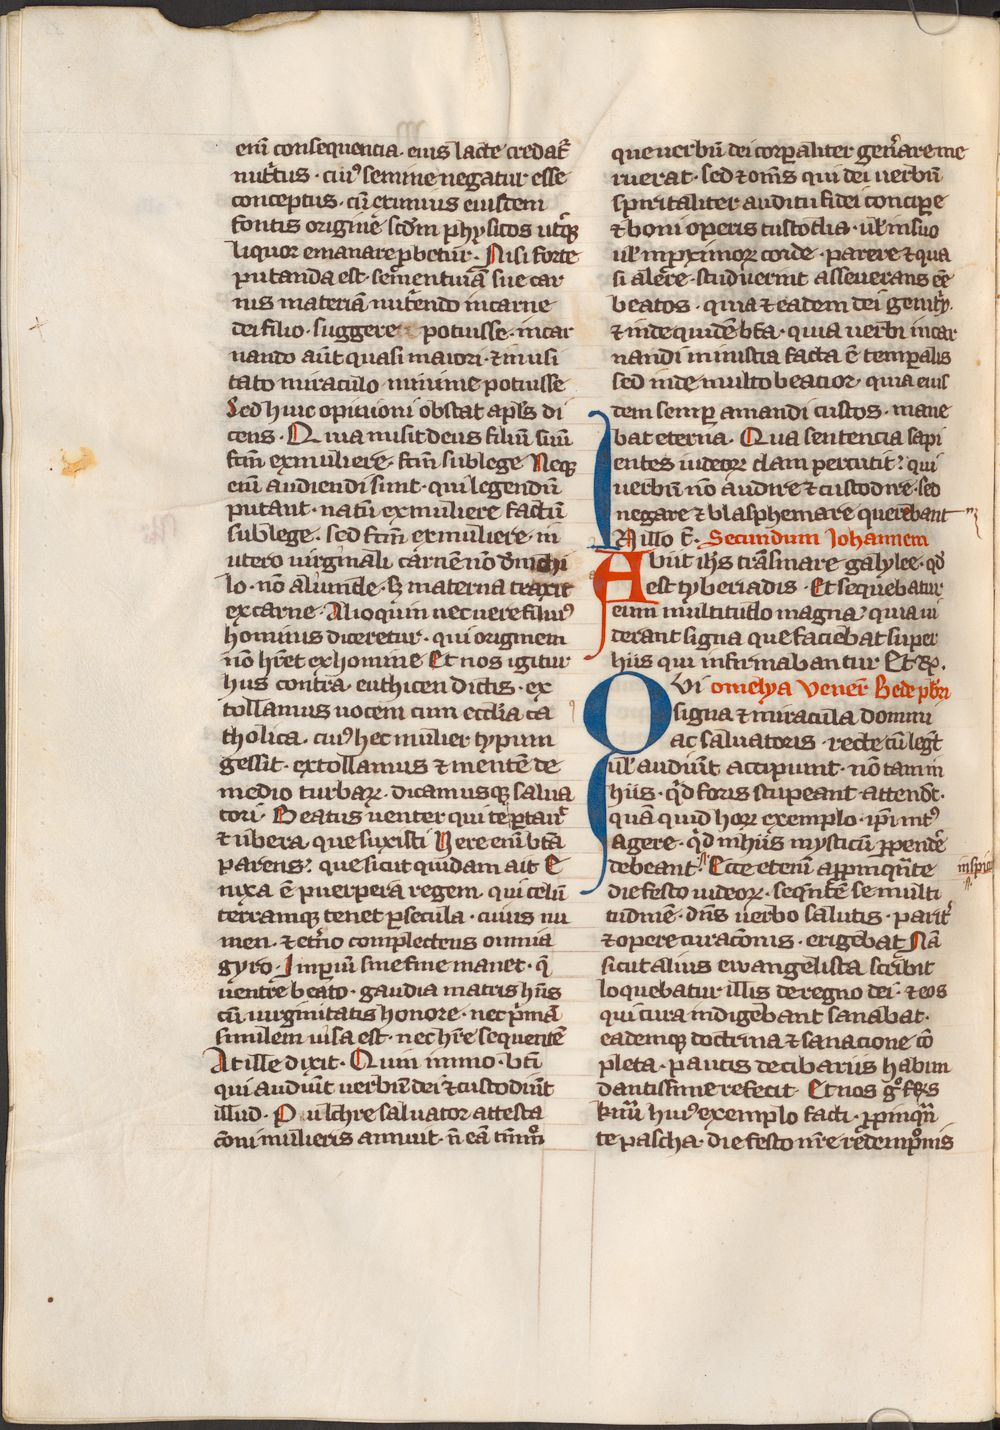 eni̅ consequencia · eius lacte credat᷑
nut᷑tus · cuiꝰ semine negatur esse
conceptus · cu̅ ex unius eiusdem
fontis origine̅ scd̅m physicos ut᷑q̅ꝫ
liquor emanare ꝑbetur · Nisi forte
putanda est · sementiua̅ sue car
nis materia̅ nut᷑endo in carne
dei filio · suggere potuisse · incar
nando aut̅ quasi maiori · ⁊ inusi
tato miraculo minime potuisse
Sed huic opinioni obstat apl̅s di
cens · Quia misit deus filiu̅ suu̅
fc̅m ex muliere · fc̅m sub lege Neqꝫ
eni̅ audiendi sunt · qui legendu̅
putant · natu̅ ex muliere factu̅
sub lege · sed fc̅m ex muliere · in
utero uirginali carne̅ no̅ de nichi
lo · no̅ aliunde · sꝫ materna traxit
ex carne · Alioquin nec uere filiuꝰ
hominis diceretur · qui originem
no̅ hr̅et ex homine Et nos igitur
hiis contra · euthicen dictis · ex
tollamus uocem cum ecclia̅ ca
tholica · cuiꝰ hec mulier typum
gessit · extollamus ⁊ mente̅ de
medio turbaꝝ · dicamusqꝫ salua
tori · Beatus uenter qui te portauit
⁊ ubera que suxisti Vere eni̅ bt̅a
parens · que sicut quidam ait E
nixa e̅ puerpera regem · qui celu̅
terramqꝫ tenet ꝑ secula · cuius nu
men · ⁊ et᷑no complectens omnia
gyro · Imperiu̅ sine fine manet · q̅
uentre beato · gaudia matris hn̅s
cu̅ uirginitatis honore · nec pͥma̅
similem uisa est · nec hr̅e sequente̅
At ille dixit · Quin immo · bt̅i
qui audiu̅t uerbu̅ dei ⁊ custodiu̅t
illud · Pulchre saluator attesta
co̅ni mulieris annuit · n̅ ea̅ tm̅m̊
que uerbu̅ dei corporaliter gen̅are me
ruerat · sed ⁊ om̅s qui dei uerbu̅
spiritaliter auditu fidei concipe
⁊ boni operis custodia · ul̅ in suo
ul̅ in proximoꝝ corde · parere ⁊ qua
si alere · studuerint asseuerans e̅e
beatos · quia ⁊ eadem dei genitͥx ·
⁊ inde quide̅ bt̅a · quia uerbi incar
nandi ministra facta e̅ temporalis
sed inde multo beatior · quia eius
dem semꝑ amandi custos · mane
bat eterna · Qua sentencia sapi
entes iudeoꝝ clam percutit · qui
uerbu̅ no̅ audire ⁊ custodire · sed
negare ⁊ blasphemare querebant
In illo t̅. Secundum Iohannem
Abiit ih̅s trans mare galylee · qd̅
est tyberiadis · Et sequebatur
eum multitudo magna · quia ui
derant signa que faciebat super
hiis qui infirmabantur Et Rꝰ.
Qvi omelya vener̅ Bede pb̅ri
signa ⁊ miracula domini
ac saluatoris · recte cu̅ legit
ul̅ audiu̅t accipiunt · no̅ tam in
hiis · qd̅ foris stupeant attendt̅ ·
qua̅ quid hoꝝ exemplo · ip̅i intꝰ
agere · qd̅ in hiis mysticu̅ ꝑpende̅
debeant · Ecce eteni̅ appinqua̅te
inspi
die festo iudeoꝝ · seqn̅te̅ se multi
tudine̅ · dn̅s uerbo salutis · parit᷑
⁊ opere curaco̅nis · erigebat Na̅
sicut alius ewangelista scribit
loquebatur illis de regno dei · ⁊ eos
qui cura indigebant sanabat ·
eademqꝫ doctrina ⁊ sanacione co̅
pleta · paucis de cibariis habun
dantissime refecit · Et nos gͦ frs̅
km̅i huiꝰ exemplo facti · ꝓpinqua̅
te pascha · die festo nr̅e redempco̅nis